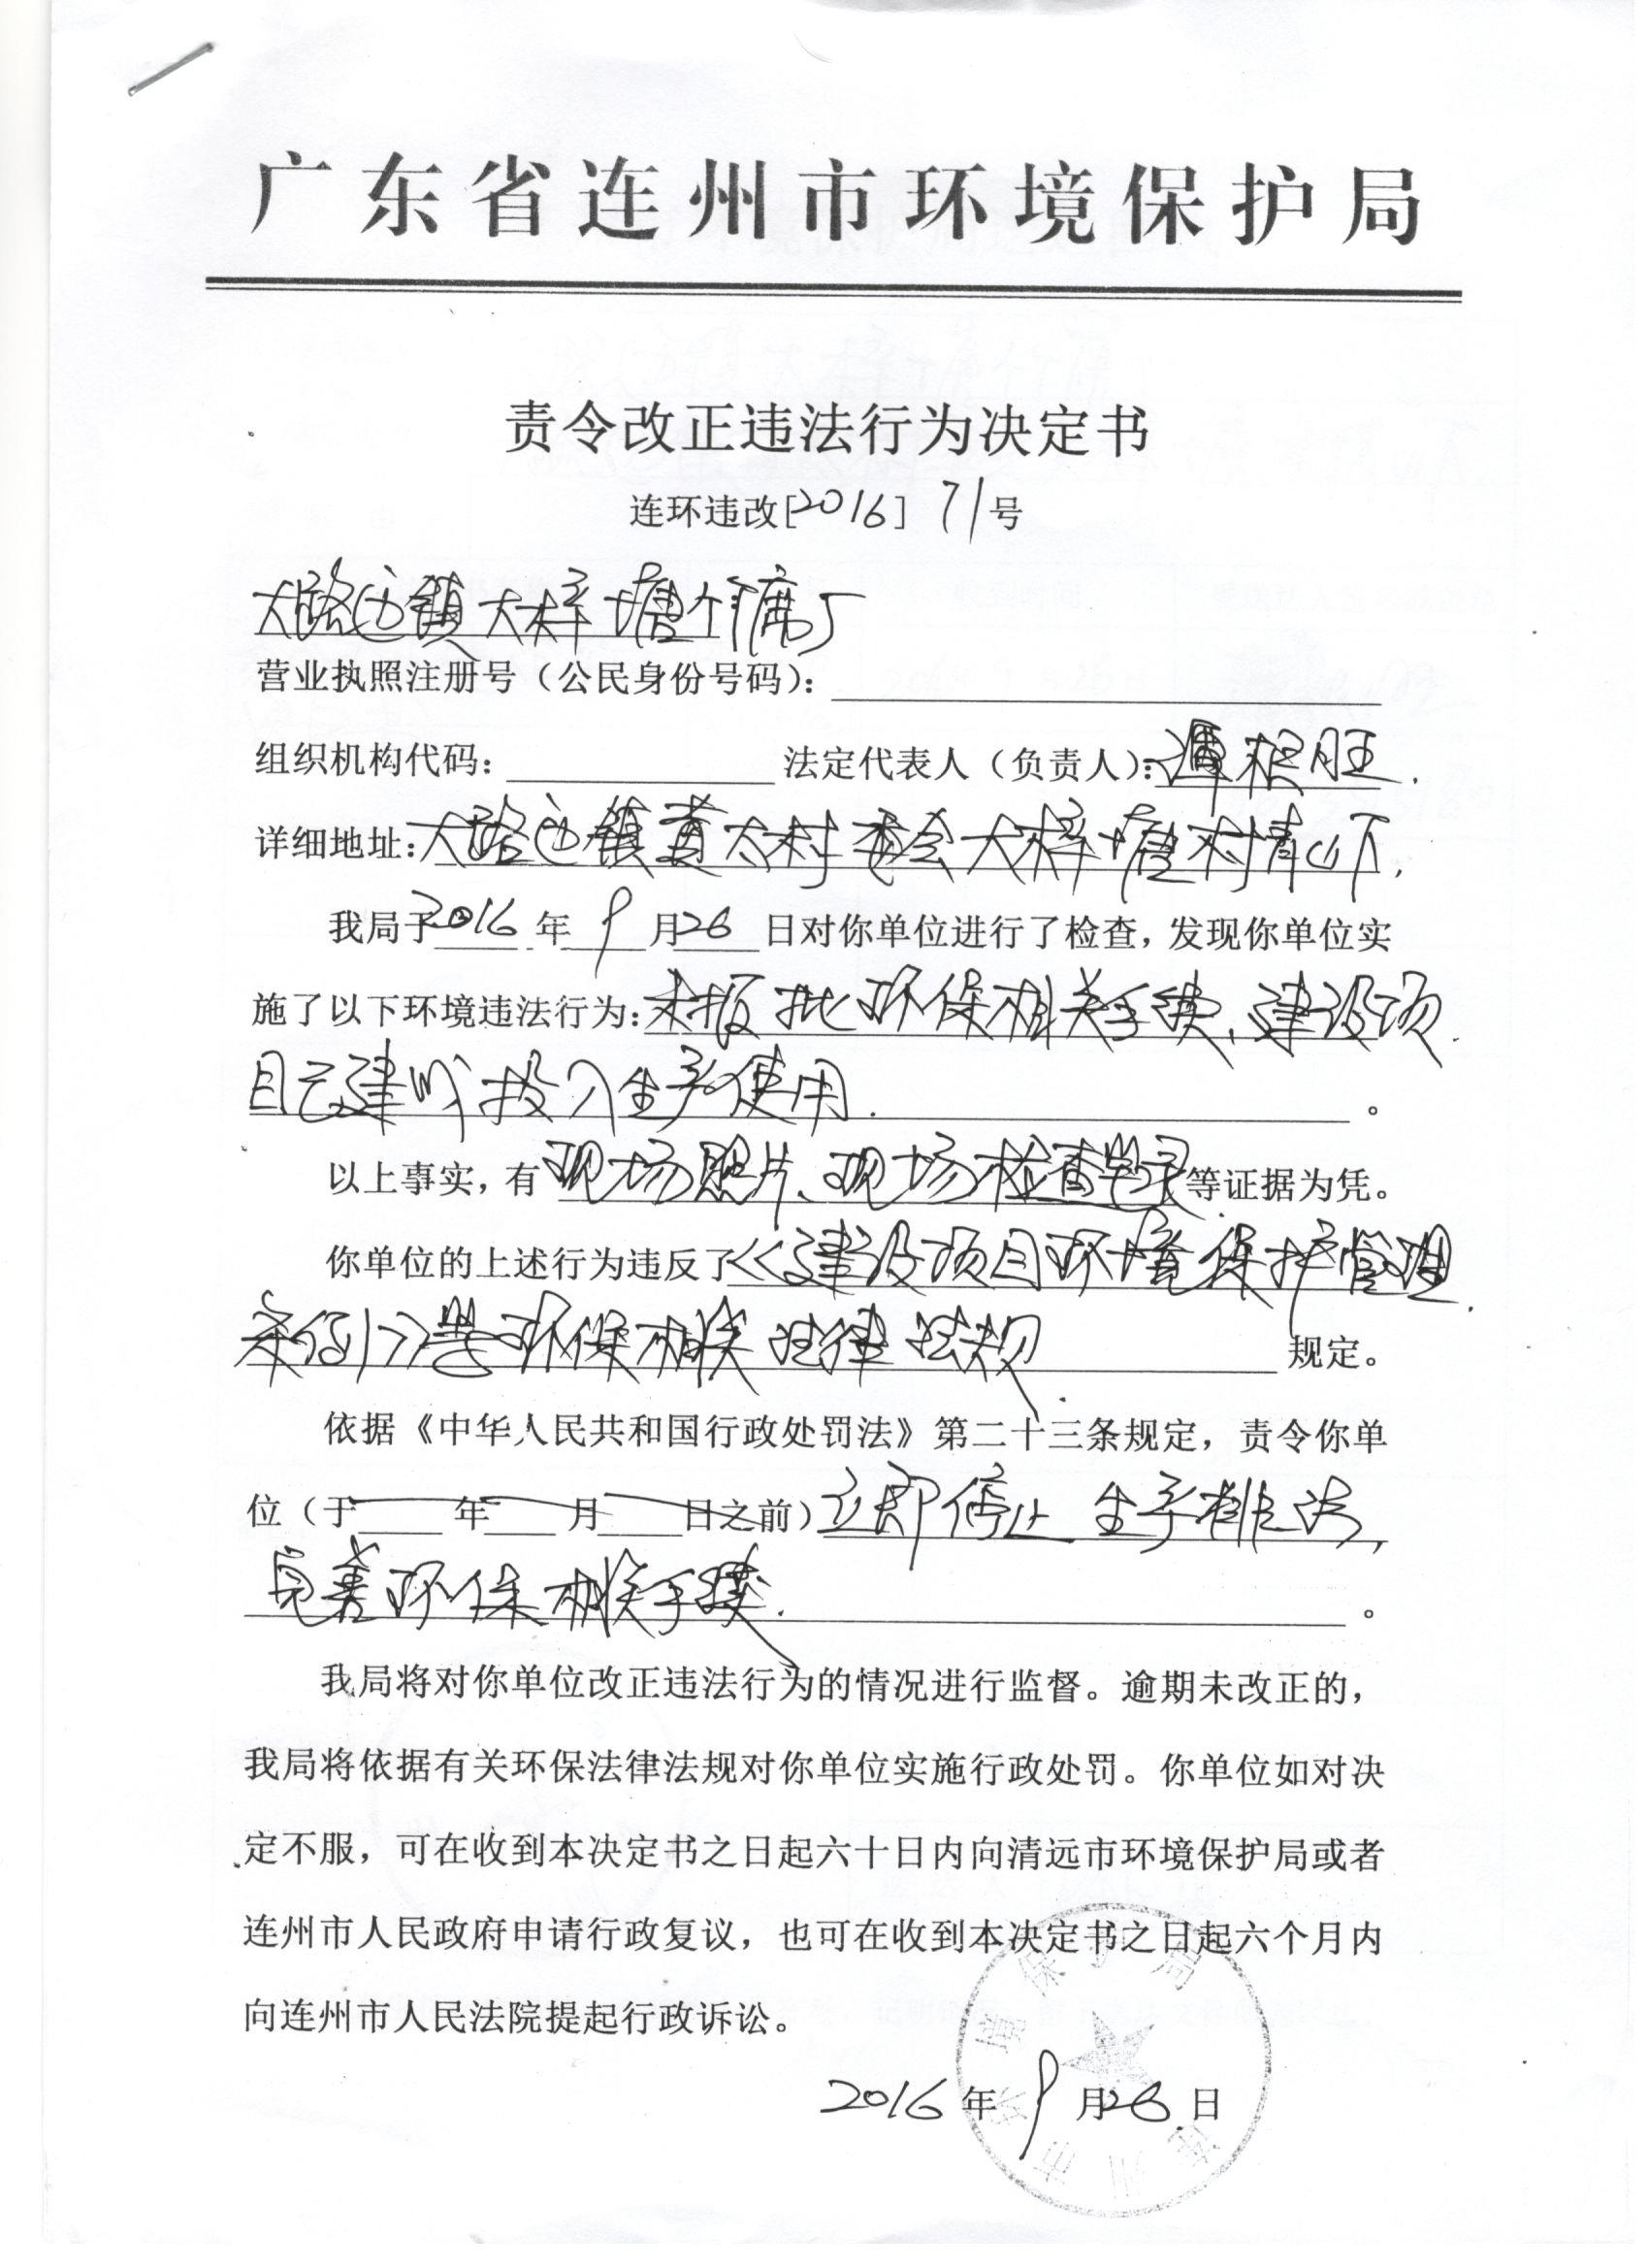 广东省连州市环境保护局
责令改正违法行为决定书
连环违改[2016] 71号
大路边镇大梓塘竹席厂
营业执照注册号（公民身份号码）：
组织机构代码： 法定代表人（负责人）：谭根旺.
详细地址：大路边镇黄太村委会大梓塘村背山下，
我局于2016年9月26日对你单位进行了检查，发现你单位实
施了以下环境违法行为：未报批环保相关手续、建设项
目已建成投入生产使用. 。
以上事实，有现场照片、现场检查笔录等证据为凭。
你单位的上述行为违反了《建设项目环境保护管理
条例》等环保相关法律法规 规定。
依据《中华人民共和国行政处罚法》第二十三条规定，责令你单
位（于 年 月 日之前）立即停止生产排污，
完善环保相关手续. 。
我局将对你单位改正违法行为的情况进行监督。逾期未改正的，
我局将依据有关环保法律法规对你单位实施行政处罚。你单位如对决
定不服，可在收到本决定书之日起六十日内向清远市环境保护局或者
连州市人民政府申请行政复议，也可在收到本决定书之日起六个月内
向连州市人民法院提起行政诉讼。
2016年9月26日
连州市环境保护局